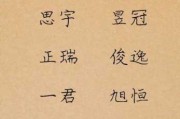 思宇 昱冠
正瑞 俊逸
一君 旭恒